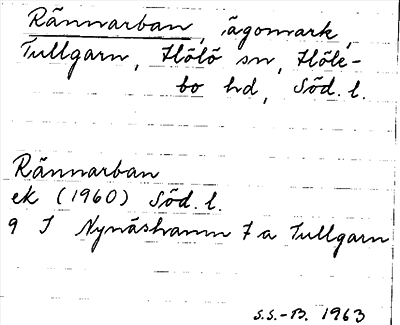 Rännarban, ägomark,
Tullgarn, Hölö sn, Höle-
bo hd, Söd. l.
Rännarban
ek (1960) Söd. l.
9 I Nynäshamn 7 a Tullgarn
S.S.-B. 1963